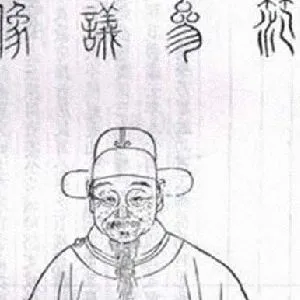 范參議像